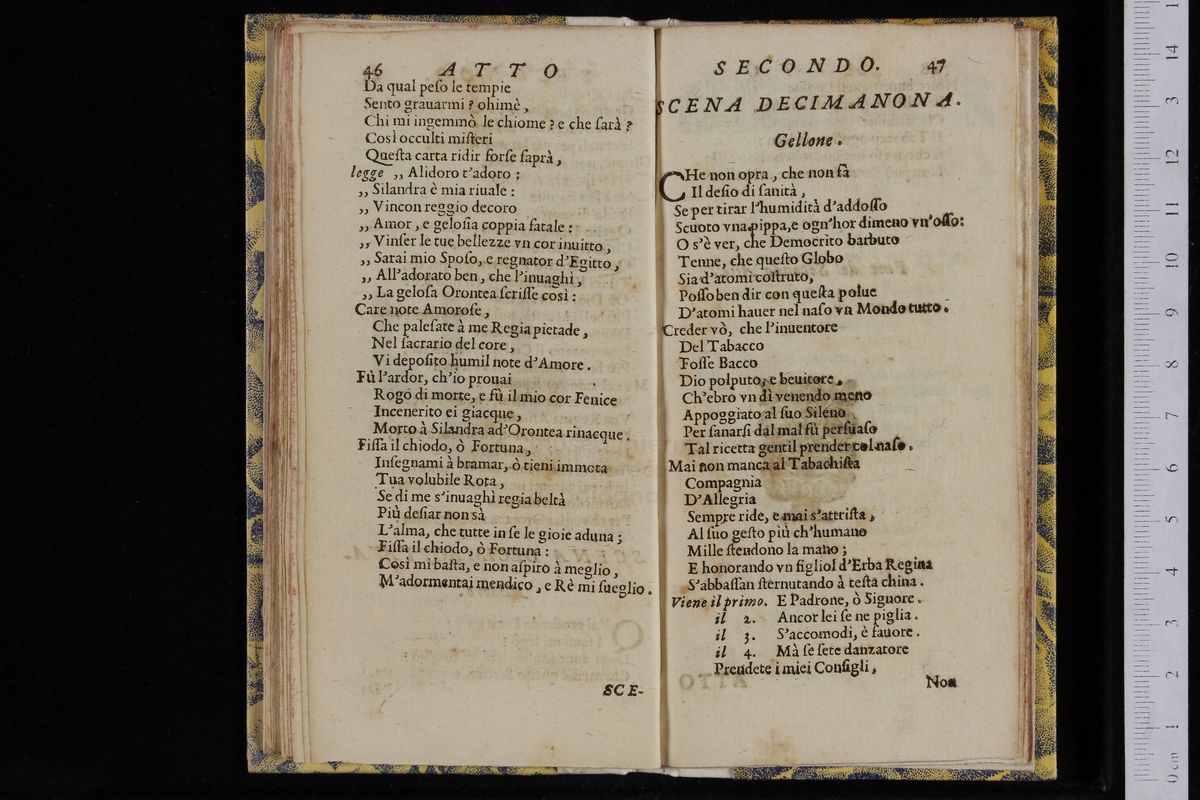 46 ATTO
Da qual peſo le tempie
Sento grauarmi ? ohimè ,
Chi mi ingemmò le chiome ? e che ſarà ?
Così occulti miſteri
Queſta carta ridir forſe ſaprà ,
legge ,, Alidoro t'adoro ;
,, Silandra è mia riuale :
,, Vincon reggio decoro
,, Amor , e geloſia coppia fatale :
,, Vinſer le tue bellezze vn cor inuitto ,
,, Sarai mio Spoſo, e regnator d'Egitto ,
,, All'adorato ben , che l'inuaghì ,
,, La geloſa Orontea ſcriſſe così :
Care note Amoroſe ,
Che paleſate à me Regia pietade ,
Nel ſacrario del core ,
Vi depoſito humil note d'Amore .
Fù l'ardor, ch'io prouai
Rogo di morte, e fù il mio cor Fenice
Incenerito ei giacque ,
Morto à Silandra ad'Orontea rinacque .
Fiſſa il chiodo, ò Fortuna ,
Inſegnami à bramar, ò tieni immota
Tua volubile Rota ,
Se di me s'inuaghì regia beltà
Più deſiar non sà
L'alma, che tutte in ſe le gioie aduna ;
Fiſſa il chiodo, ò Fortuna :
Così mi baſta, e non aſpiro à meglio ,
M'adormentai mendico , e Rè mi ſueglio .
SCE-
SECONDO. 47
SCENA DECIMANONA.
Gellone .
CHe non opra , che non fà
Il deſio di ſanità ,
Se per tirar l'humidità d'addoſſo
Scuoto vna pippa,e ogn'hor dimeno vn'oſſo:
O s'è ver, che Democrito barbuto
Tenne, che queſto Globo
Sia d'atomi coſtruto,
Poſſo ben dir con queſta polue
D'atomi hauer nel naſo vn Mondo tutto .
Creder vò, che l'inuentore
Del Tabacco
Foſſe Bacco
Dio polputo, e beuitore ,
Ch'ebro vn dì venendo meno
Appoggiato al ſuo Sileno
Per ſanarſi dal mal fù perſuaſo
Tal ricetta gentil prender col naſo .
Mai non manca al Tabachiſta
Compagnia
D'Allegria
Sempre ride, e mai s'attriſta ,
Al ſuo geſto più ch'humano
Mille ſtendono la mano ;
E honorando vn figliol d'Erba Regina
S'abbaſſan ſternutando à teſta china .
Viene il primo. E Padrone, ò Signore .
il 2. Ancor lei ſe ne piglia .
il 3. S'accomodi, è fauore .
il 4. Mà ſe ſete danzatore
Prendete i miei Conſigli ,
Non